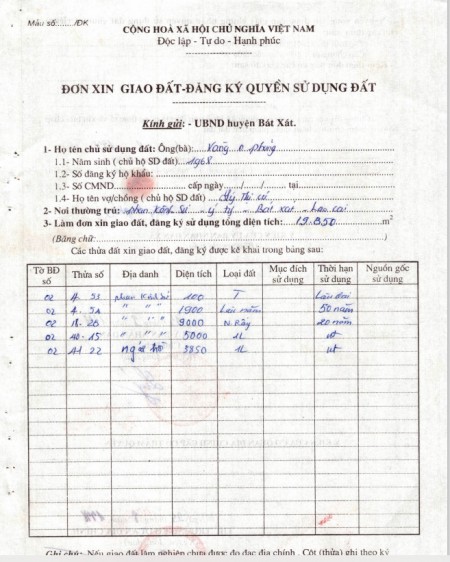 Mẫu số:......../ĐK
CỘNG HOÀ XÃ HỘI CHỦ NGHĨA VIỆT NAM
Độc lập - Tự do - Hạnh phúc
ĐƠN XIN GIAO ĐẤT-ĐĂNG KÝ QUYỀN SỬ DỤNG ĐẤT
Kính gửi: - UBND huyện Bát Xát.
1- Họ tên chủ sử dụng đất: Ông(bà):.... Vàng a phủng
1.1- Năm sinh ( chủ hộ SD đất) 1968
1.2- Số đăng ký hộ khẩu:
1.3- Số CMND................ cấp ngày ...../...../....... tại
1.4- Họ tên vợ/chồng ( chủ hộ SD đất)
2- Nơi thường trú: phan Ý tý - Bát xát - Lào cai
3- Làm đơn xin giao đất, đăng ký sử dụng tổng diện tích: 19.850 m2
(Bằng chữ:
Các thửa đất xin giao đất, đăng ký được kê khai trong bảng sau:
Tờ BĐ số Thửa số Địa danh Diện tích Loại đất Mục đích sử dụng Thời hạn sử dụng Nguồn gốc sử dụng
02 A. 53 phan 100 T Lâu dài
02 " " " 1900 50 năm
02 18. 26 " " " 9000 N. Rẫy 20 năm
02 40 - 15 " " " 5000 1L
02 41 22 3850 1L
Ghi chú: Nếu giao đất lâm nghiệp chưa được đo đạc địa chính . Cột (thửa) ghi theo ký